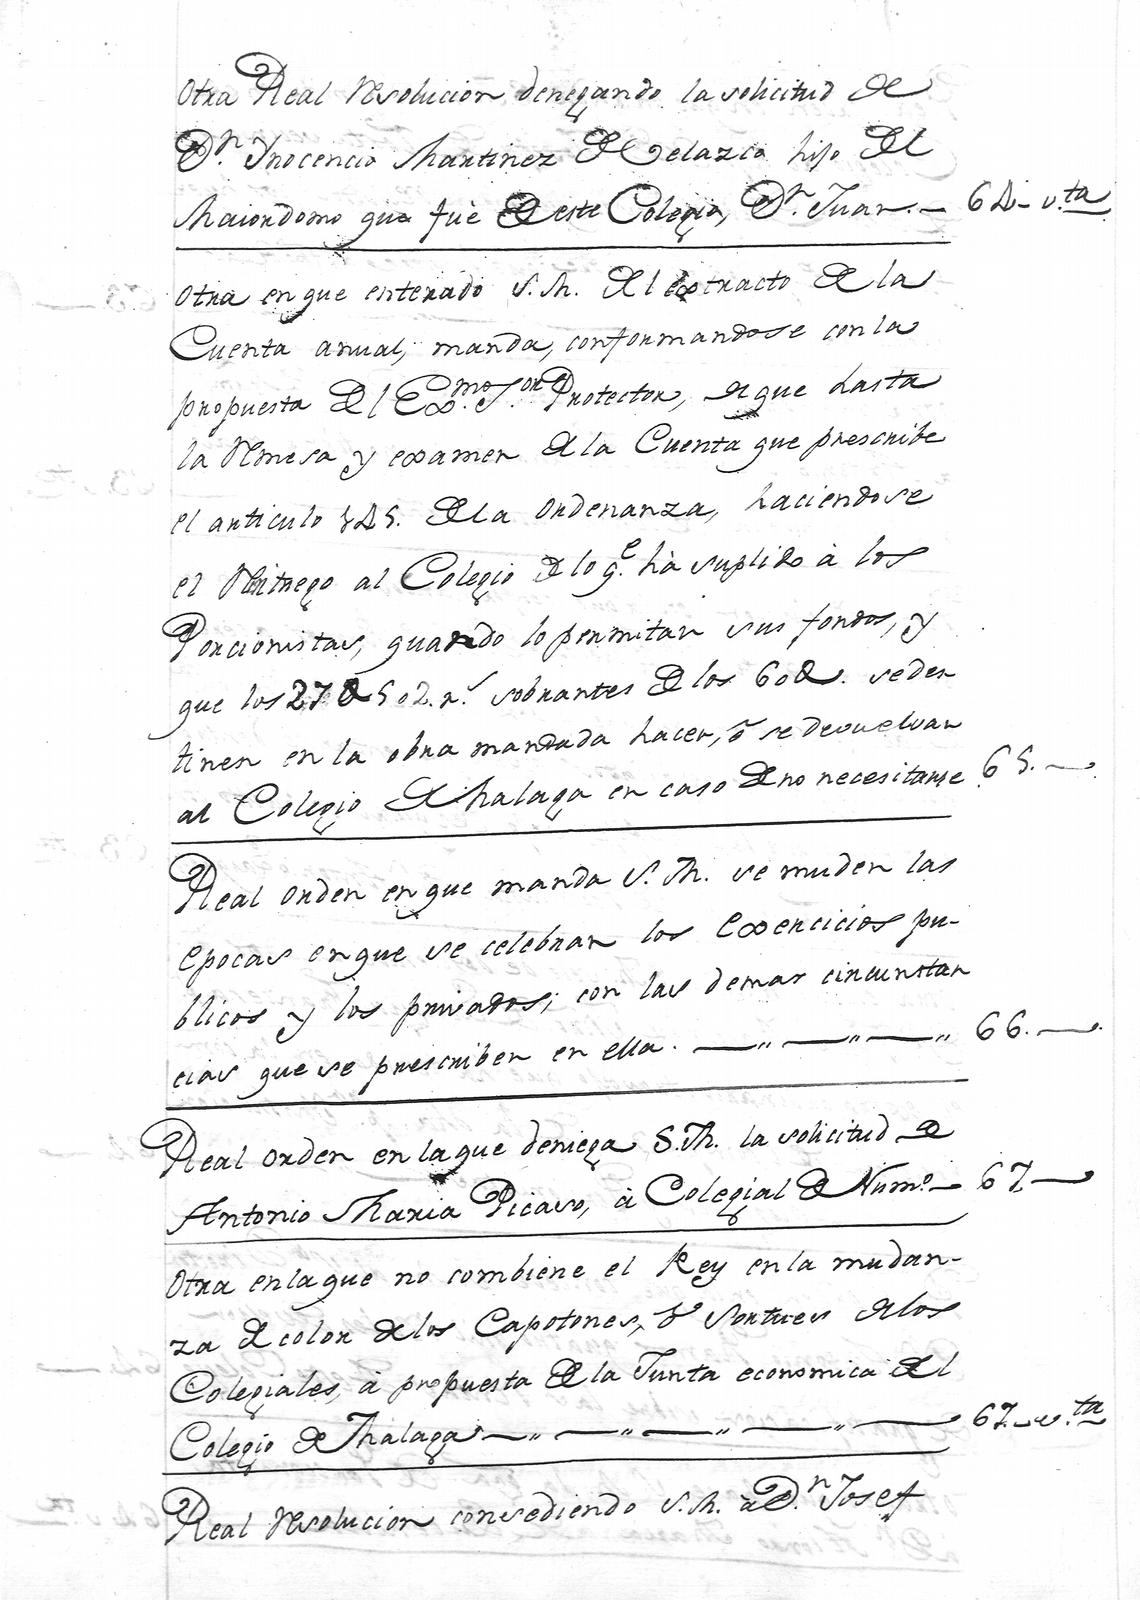 Otra Real resolucion denegando la solicitud de
Dn. Ynocencio Martinez de Velazco hijo del
Maiordomo que fuè de este Colegio, Dn. Juan. — 64 v.ta
Otra en que enterado S. M. del extracto de la
Cuenta anual, manda, conformandose con la
propuesta del Exmo. S.or Protector, de que hasta
la remesa y examen de la Cuenta que prescribe
el articulo 145. de la ordenanza, haciendose
el reintrego al Colegio de lo q.e hà suplido à los
Porcionistas, quando lo permitan sus fondos, y
que los 27@502 r.s sobrantes de los 60@. se des
tinen en la obra mandada hacer, ò se devuelvan
al Colegio de Malaga en caso de no necesitarse 65. —
Real orden en que manda S. M. se muden las
epocas en que se celebran los exercicios pu-
blicos y los privados; con las demas circunstan
cias que se prescriben en ella. — „ — „ — „ 66. —
Real orden en la que deniega S. M. la solicitud de
Antonio Maria Picaso, à Colegial de Num.o — 67 —
Otra en la que no combiene el Rey en la mudan-
za de color de los Capotones, ò Sortues de los
Colegiales, à propuesta de la Junta economica del
Colegio de Malaga — „ — „ — „ — „ — 67. v.ta
Real resolucion consediendo S. M. à Dn. Josef